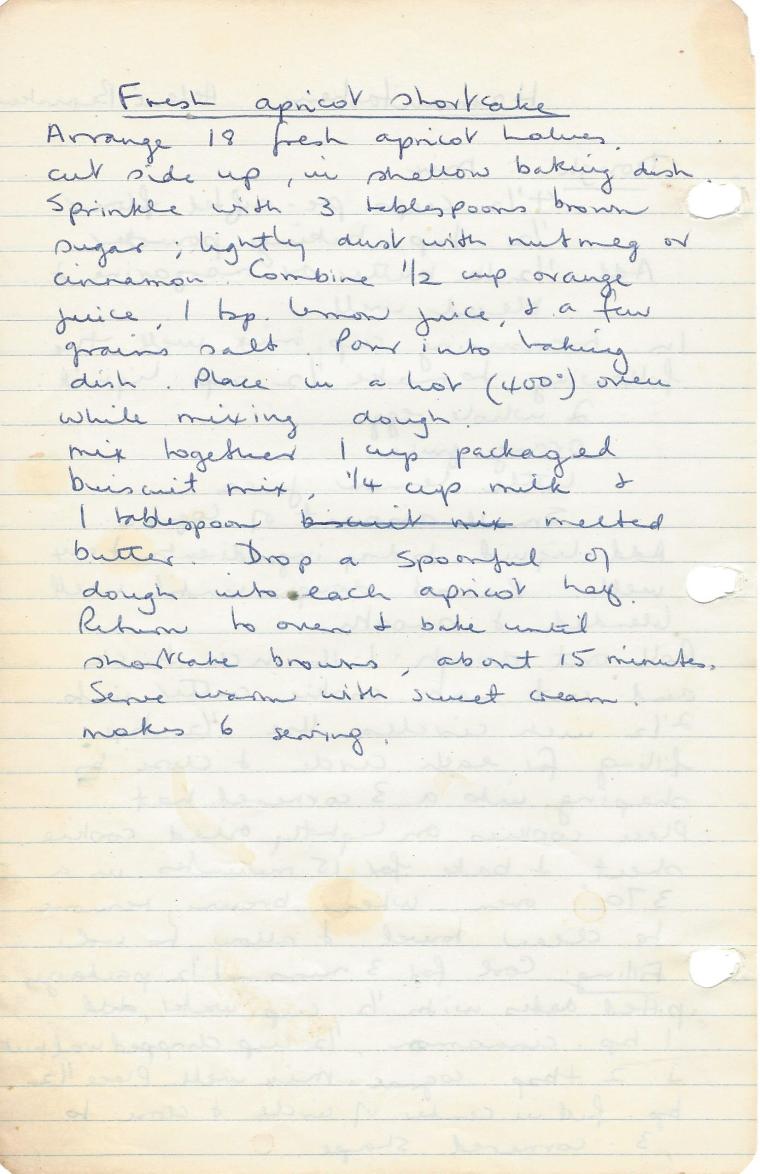 Fresh apricot shortcake
Arrange 18 fresh apricot halves,
cut side up, in shallow baking dish.
Sprinkle with 3 tablespoons brown
sugar; lightly dust with nutmeg or
cinnamon. Combine 1/2 cup orange
juice, 1 tsp. lemon juice, & a few
grains salt. Pour into baking
dish. Place in a hot (400°) oven
while mixing dough.
mix together 1 cup packaged
buiscuit mix, 1/4 cup milk &
1 tablespoon biscuit mix melted
butter. Drop a spoonful of
dough into each apricot half.
Return to oven & bake until
shortcake browns, about 15 minutes.
Serve warm with sweet cream.
makes 6 serving.